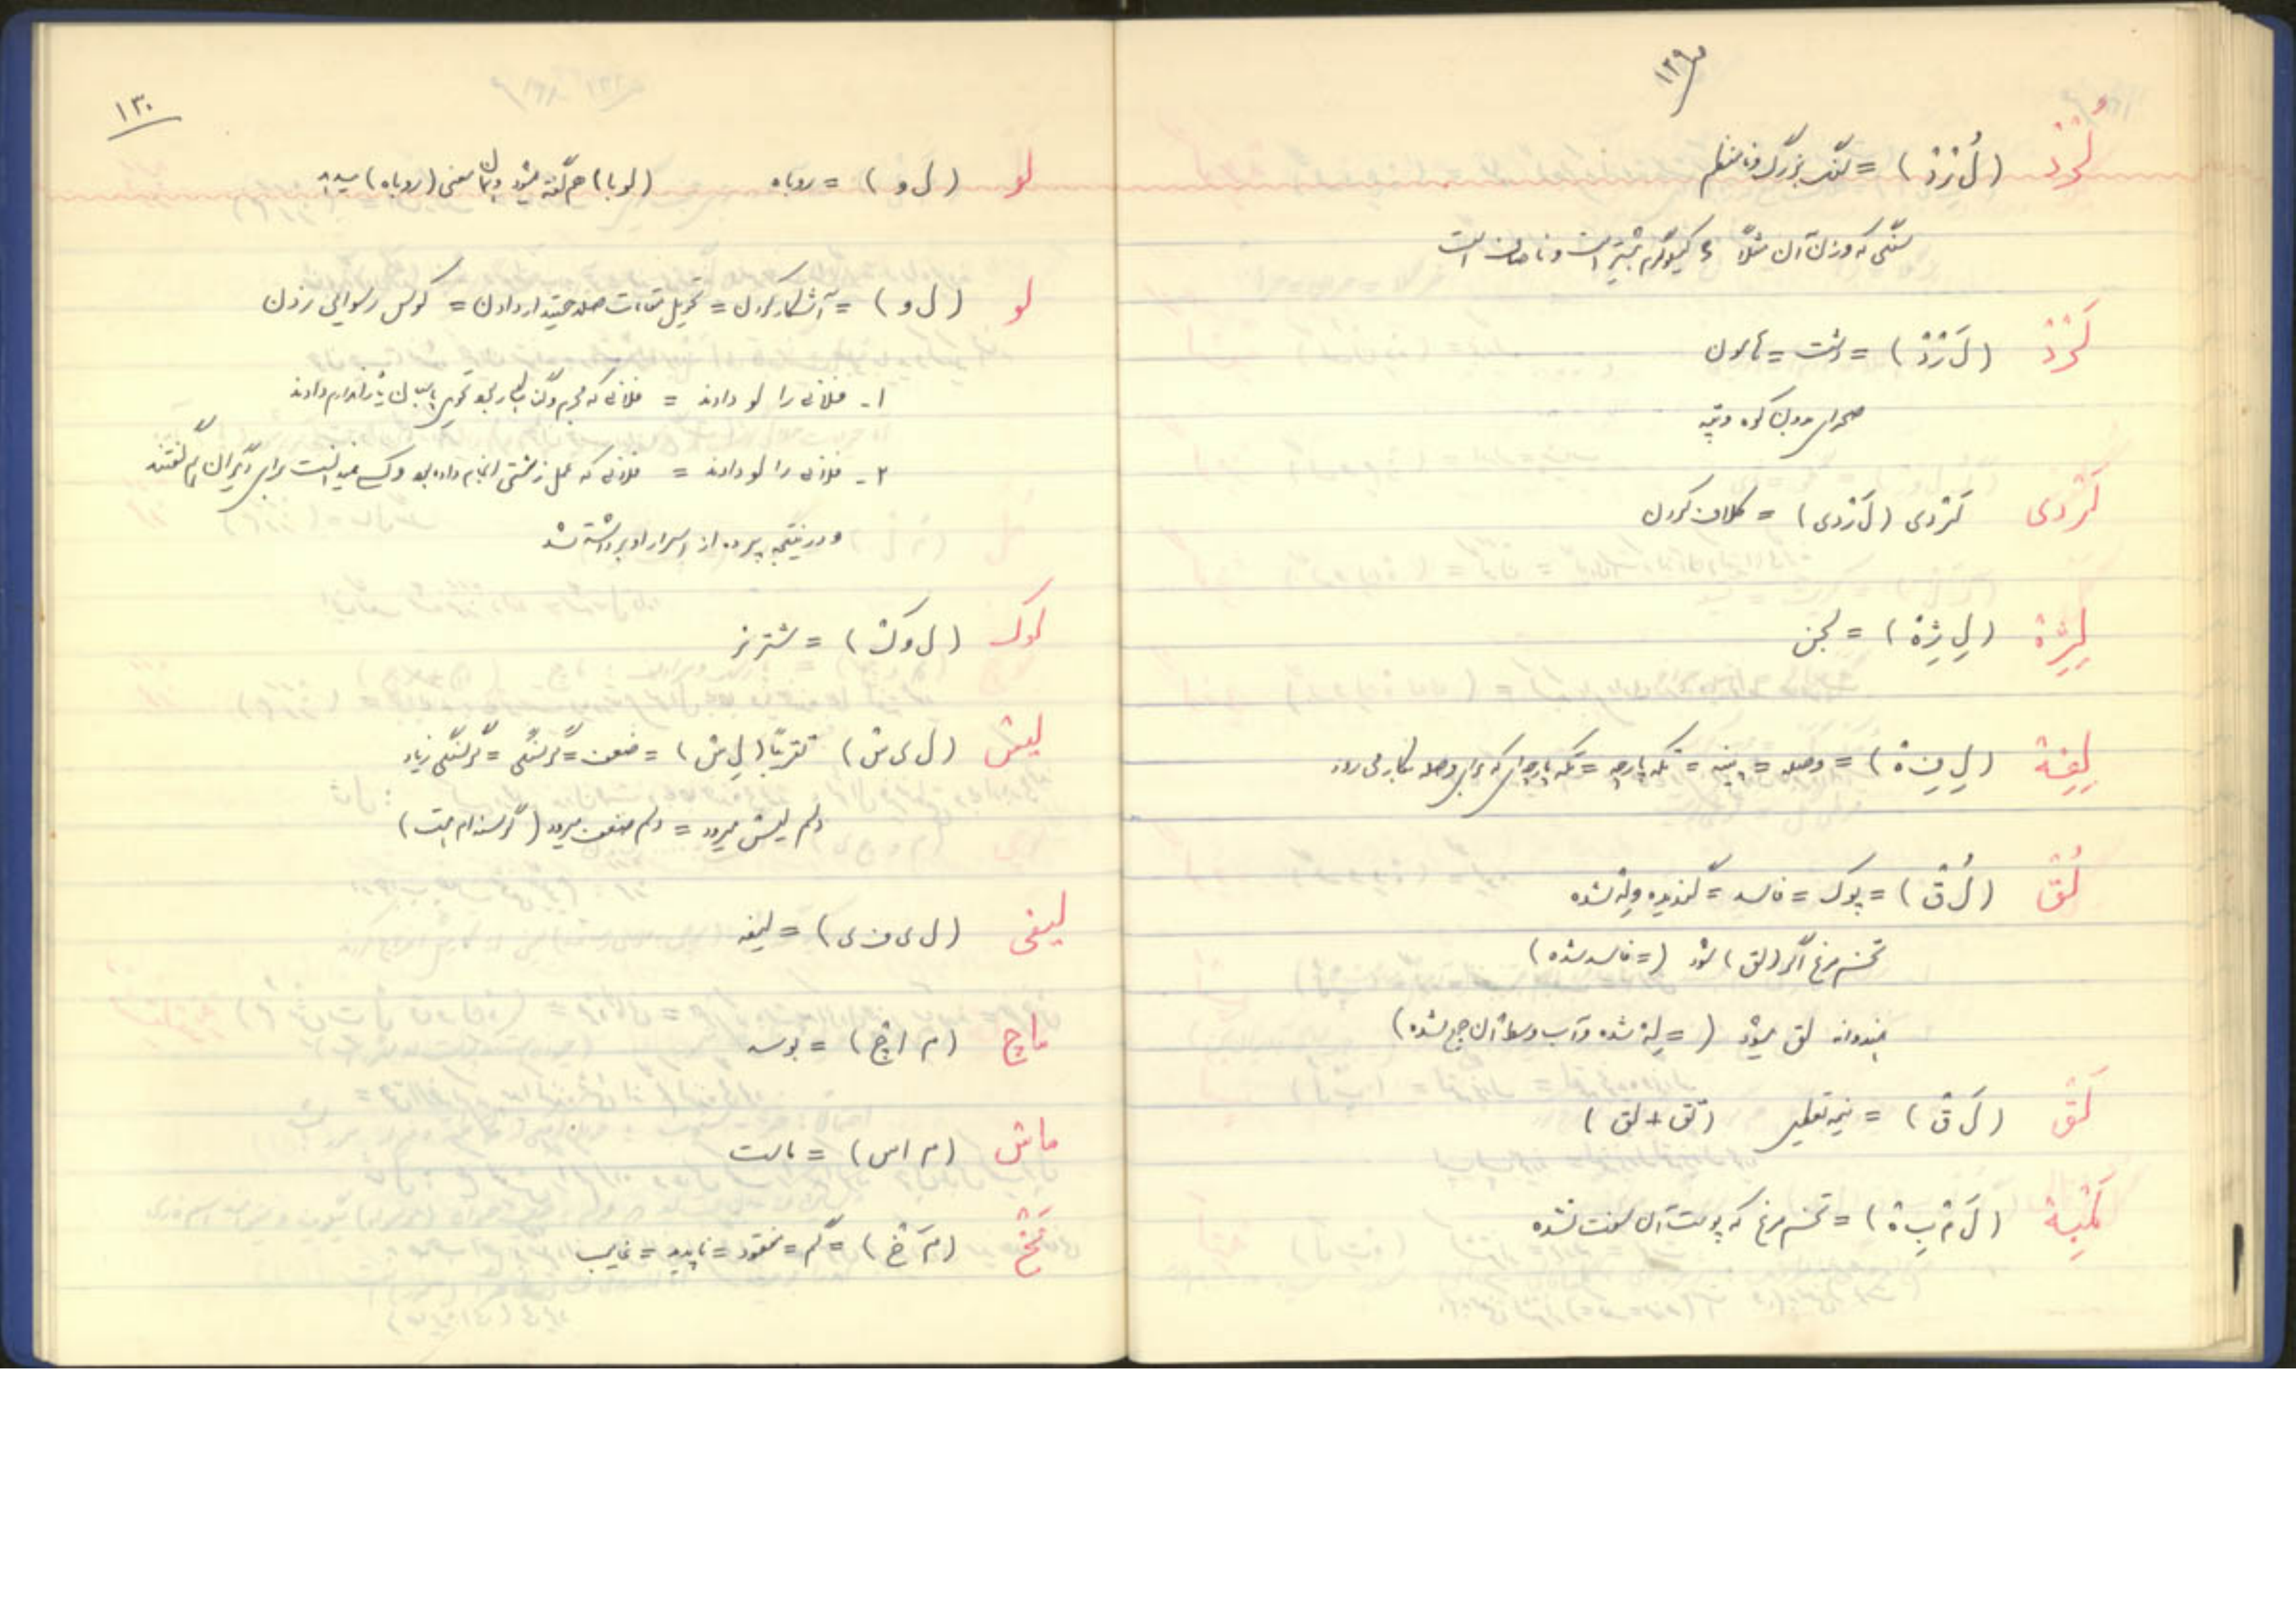 ص۱۲۹
لُرْدْ (لُ رْدْ) = سنگ بزرگ و نامنظم
سنگی که وزن آن مثلاً ۴ کیلوگرم بیشتر است و ناصاف است
لَرْدْ (لَ رْدْ) = دشت = هامون
صحرای بدون کوه و تپه
لَرْدی لَرْدی (لَ رْدی) = کلاف کردن
لِژِهْ (لِ ژِهْ) = لجن
لِفِهْ (لِ فِ هْ) = وصله = پینه = تکه پارچه = تکه پارچه‌ای که برای وصله بکار می رود
لُقْ (لُ قْ) = پوک = فاسد = گندیده و له شده
تخم مرغ اگر (لق) شود (= فاسد شده)
هندوانه لق میشود (= له شده و آب وسط آن جمع شده)
لَقْ (لَ قْ) = نیمه تعطیل (تق + لق)
لَمْبِهْ (لَ مْ بِ هْ) = تخم مرغ که پوست آن سفت نشده
۱۳۰
لو (ل و) = روباه (لوبا) هم گفته میشود و همان معنی (روباه) میدهد
لو (ل و) = آشکار کردن = تحویل مقامات صلاحیتدار دادن = کوس رسوایی زدن
۱- فلانی را لو دادند = فلانی که مجرم و گناهکار بود تحویل پاسبان یا ژاندارم دادند
۲- فلانی را لو دادند = فلانی که عمل زشتی انجام داده بود و کسی نمیدانست برای دیگران هم گفتند
و در نتیجه پرده از اسرار او برداشته شد
لوک (ل و کْ) = شتر نر
لیش (ل ی ش) تقریباً (لِ ش) = ضعف = گرسنگی = گرسنگی زیاد
دلم لیش میرود = دلم ضعف میرود (گرسنه ام است)
لیفی (ل ی ف ی) = لیفه
ماچ (م ا چْ) = بوسه
ماس (م ا س) = ماست
مَخْ (مَ خْ) = گم = مفقود = ناپدید = غایب